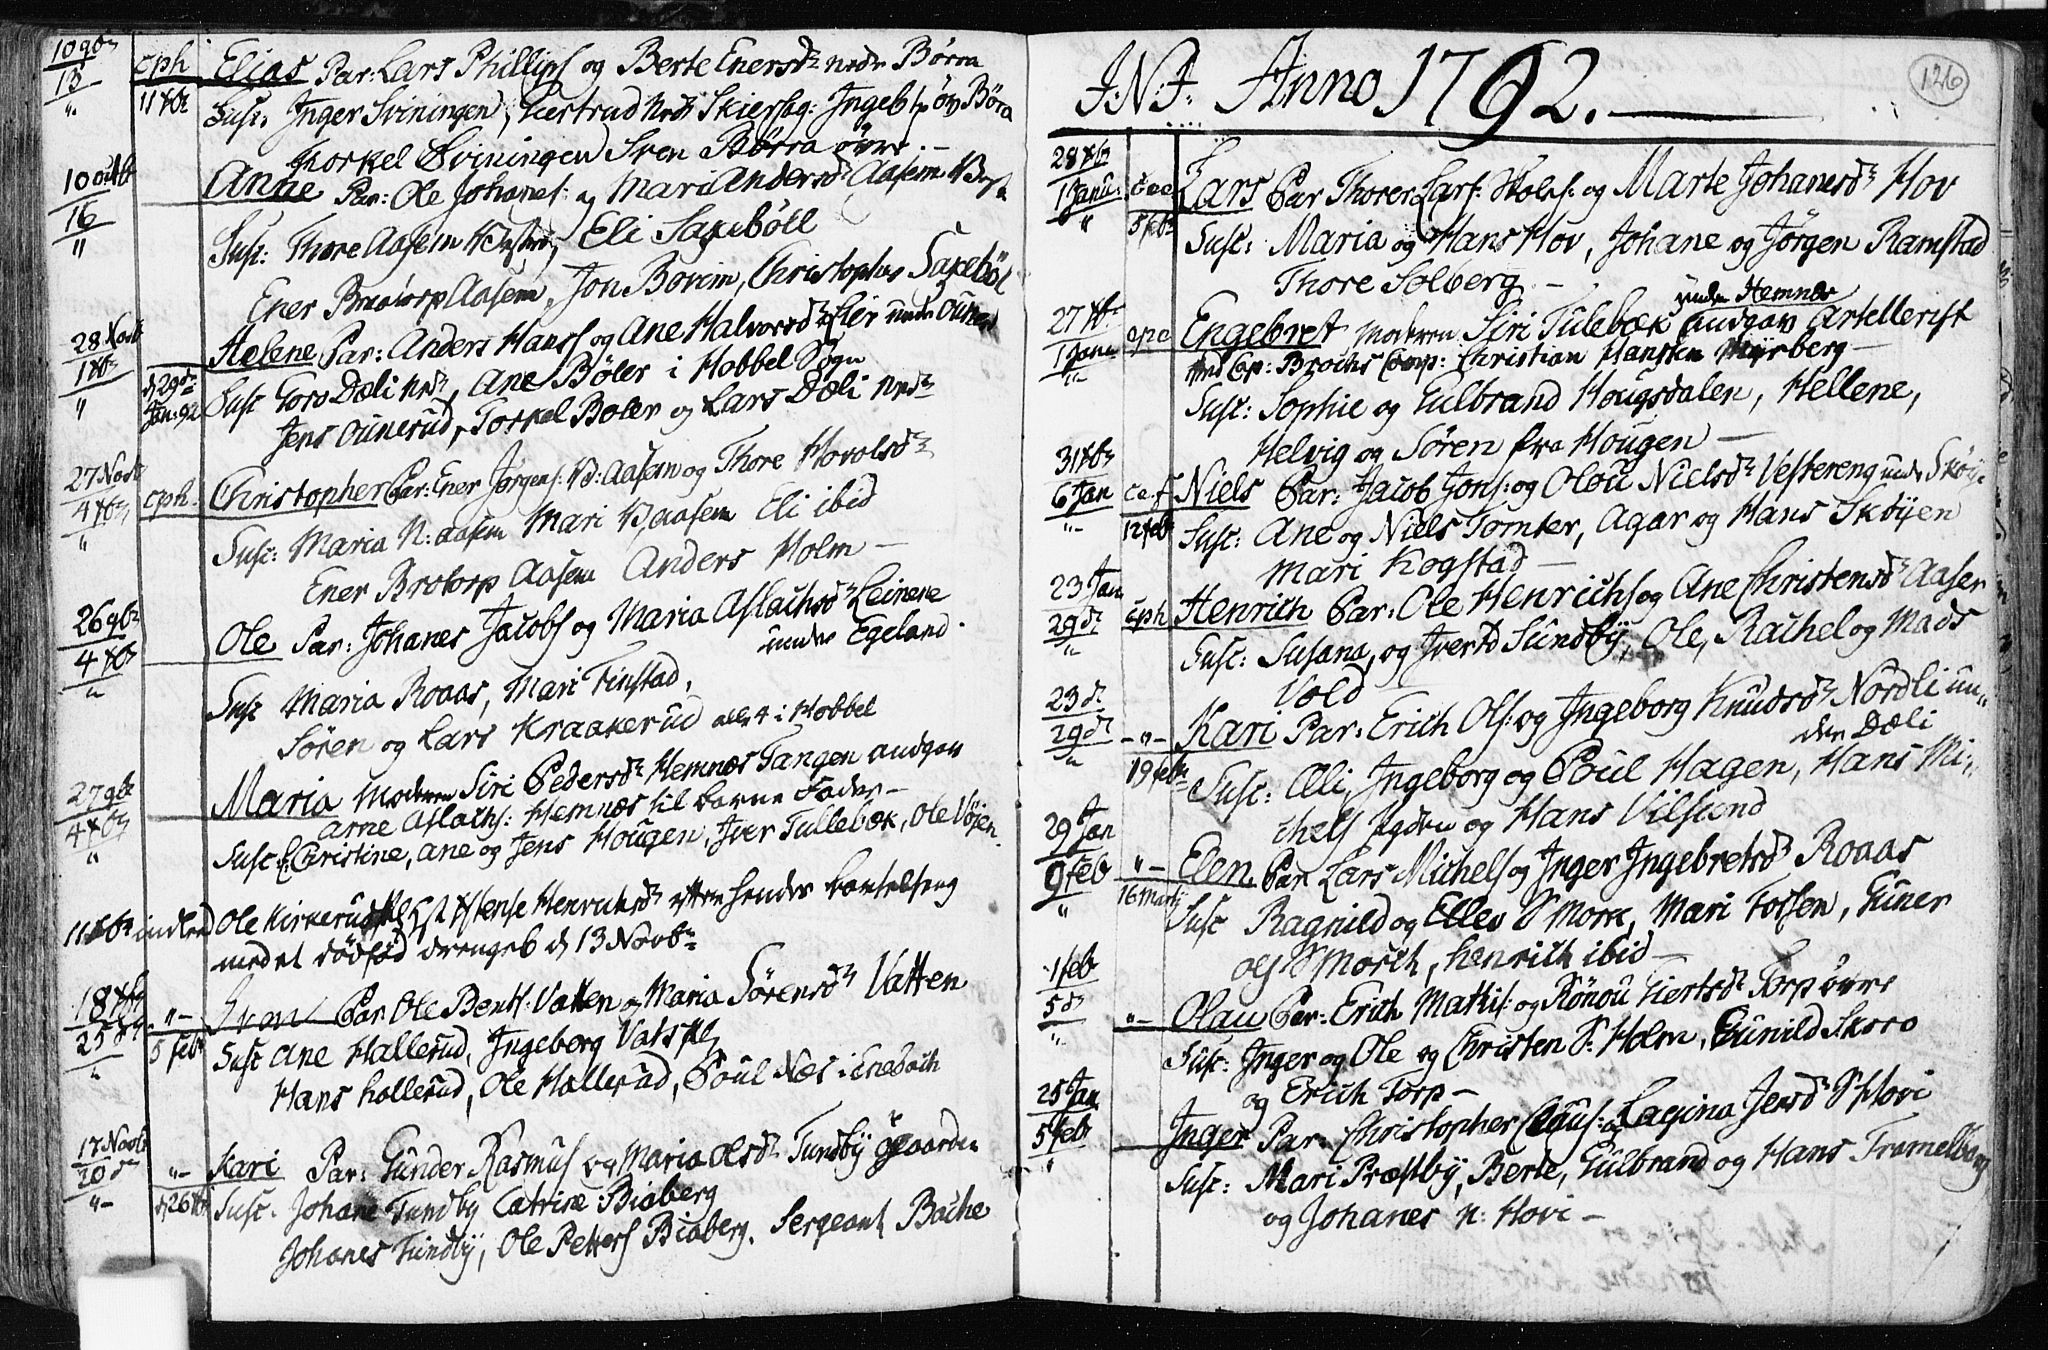 10 9br
13
"
cph
11 Xbr
Elias Par: Lars Phillips og Berte Enersdr nedr Børra
Susc: Inger Sviningen, Giertrud nedr Skiersbg: Ingeb: øv Børa
Thorkel Sviningen Sven Børra øvre.
10 octb
16
"
Anne Par: Ole Johanes: og Mari Andersdr Aasem
Susc: Thore Aasem Vestre, Eli Saxebøll
Ener Brotorp Aasem, Jon Bovim, Christopher Saxebøl
28 Novb
1 Xbr
"
d 29de
Jan: 92
Helene Par: Anders Hans og Ane Halvorsdr Eier under Ouner
Susc Goro Dæli nedr, Ane Bøler i Hobbel Sogn
Jens Ounerud, Torkel Boler og Lars Dæli nedr
27 Novb
4 Xbr
"
cph.
Christopher Par: Ener Jørgens: V: Aasem og Thore Hovolsdr
Susc: Maria N: Aasem Mari V Aasem Eli ibid
Ener Brotorp Aasem Anders Holm —
26 9br
4 Xbr
"
Ole Par: Johanes Jacobs og Maria Aslachsdr Leinene
under Egeland.
Susc Maria Roaas, Mari Finstad,
Søren og Lars Kraakerud alle 4 i Hobbel
27 9br
4 Xbr
"
Maria Moderen Siri Pedersdr Hemnæs Tangen audgav
Arne Aslachs: Hemnæs til barne Fader —
Susc C: Christine, Ane og Jens Hougen, Iver Tullebæk, Ole Vøien
11 Xbr indled Ole Kirkerud Stense Henrichsdr efter hendes barselseng
med et dødfød drengeb d 13 Novbr
18 Xbr
25
"
"—
5 Febr
Sven Par Ole Bents: Vatten og Maria Sørensdr Vatten
Susc Ane Hallerud, Ingeborg Vats
Hans hollerud, Ole Hallerud, Poul Næs i Enebach
17 Novb
20 d
"—
"—
d 26 Xbr
Kari Par: Gunder Rasmus og Maria Olsdr Tundby
Susc. Johane Tundby Catrine Biaberg
Johanes Tundby, Ole Petters Biaberg. Sergeant Bache
126
I.N.J. Anno 1792.
28 Xbr
1 Janu:
"
cae
5 febr
Lars Par Thorer Lars: Hols: og Marte Johanesdr Hov
Susc: Maria og Hans Hov, Johane og Jörgen Ramstad
Thore Solberg —
27 Xbr
1 Janu
"
epa
under Hemnæs
Engebret Moderen Siri Tulebæk audgav Artellerist
ved Cap: Brochs Comp: Christian Hansen Myrberg —
Susc: Sophie og Gulbrand Hougsdalen, Hellene,
Helvig og Søren fra Hougen —
31 Xbr
6 Jan
"
ca.f
12 feb
Niels Par: Jacob Jons: og Olou Nielsdr Vestereng under Skøye
Susc: Ane og Niels Tomter, Agar og Hans Skøyen
Mari Kogstad —
23 Jan
29 d
"
cph
Henrich Par: Ole Henrichs og Ane Christensdr Aaser
Susc: Susana, og Iver Sundby, Ole, Rachel og Mads
Vold
23 d
29 d
"
—"—
19 febr
Kari Par: Erich Ols: og Ingeborg Knudsdr Nordli un"
der Dæli
Susc: Æli, Ingeborg og Poul Hagen, Hans Mi"
chels Igdre og Hans Vilsund
29 Jan
9 feb
"
"—
16 Martj
Elen Par Lars Michels og Inger Ingebretsdr Roaas
Susc Ragnild og Ellev S Mork, Mari Tossen, Guner
Ols S Morch, henrich ibid —
1 feb
5 d
"
"—
Olau Par: Erich Mathis: og Rönou Giertsdr Torp øvre
Susc: Inger og Ole og Christen S: Holm, Gunild Skoro
og Erich Torp —
25 Jan
5 feb
"
Inger Par: Christopher Claus: og Ragina Jensdr S Hovi
Susc: Mari Præstby, Berte, Gulbrand og Hans Tramelborg
og Johanes n: Hovi —